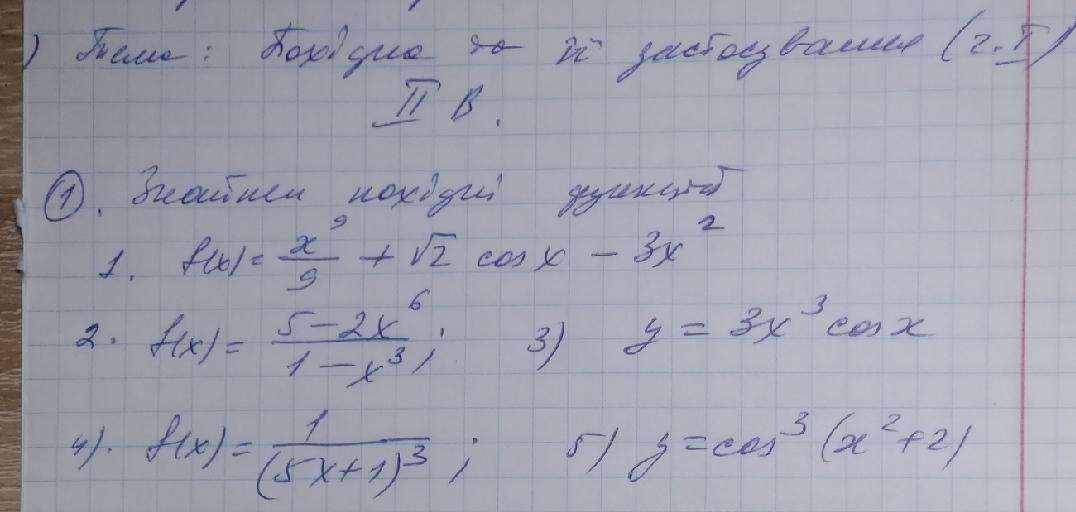 ) Тема: Похідна та її застосування (ч. I)
II В.
1. Знайти похідні функцій
1. f(x) = x⁹/9 + √2 cos x − 3x²
2. f(x) = (5 − 2x⁶)/(1 − x³); 3) y = 3x³ cos x
4). f(x) = 1/(5x+1)³; 5) y = cos³ (x² + 2)